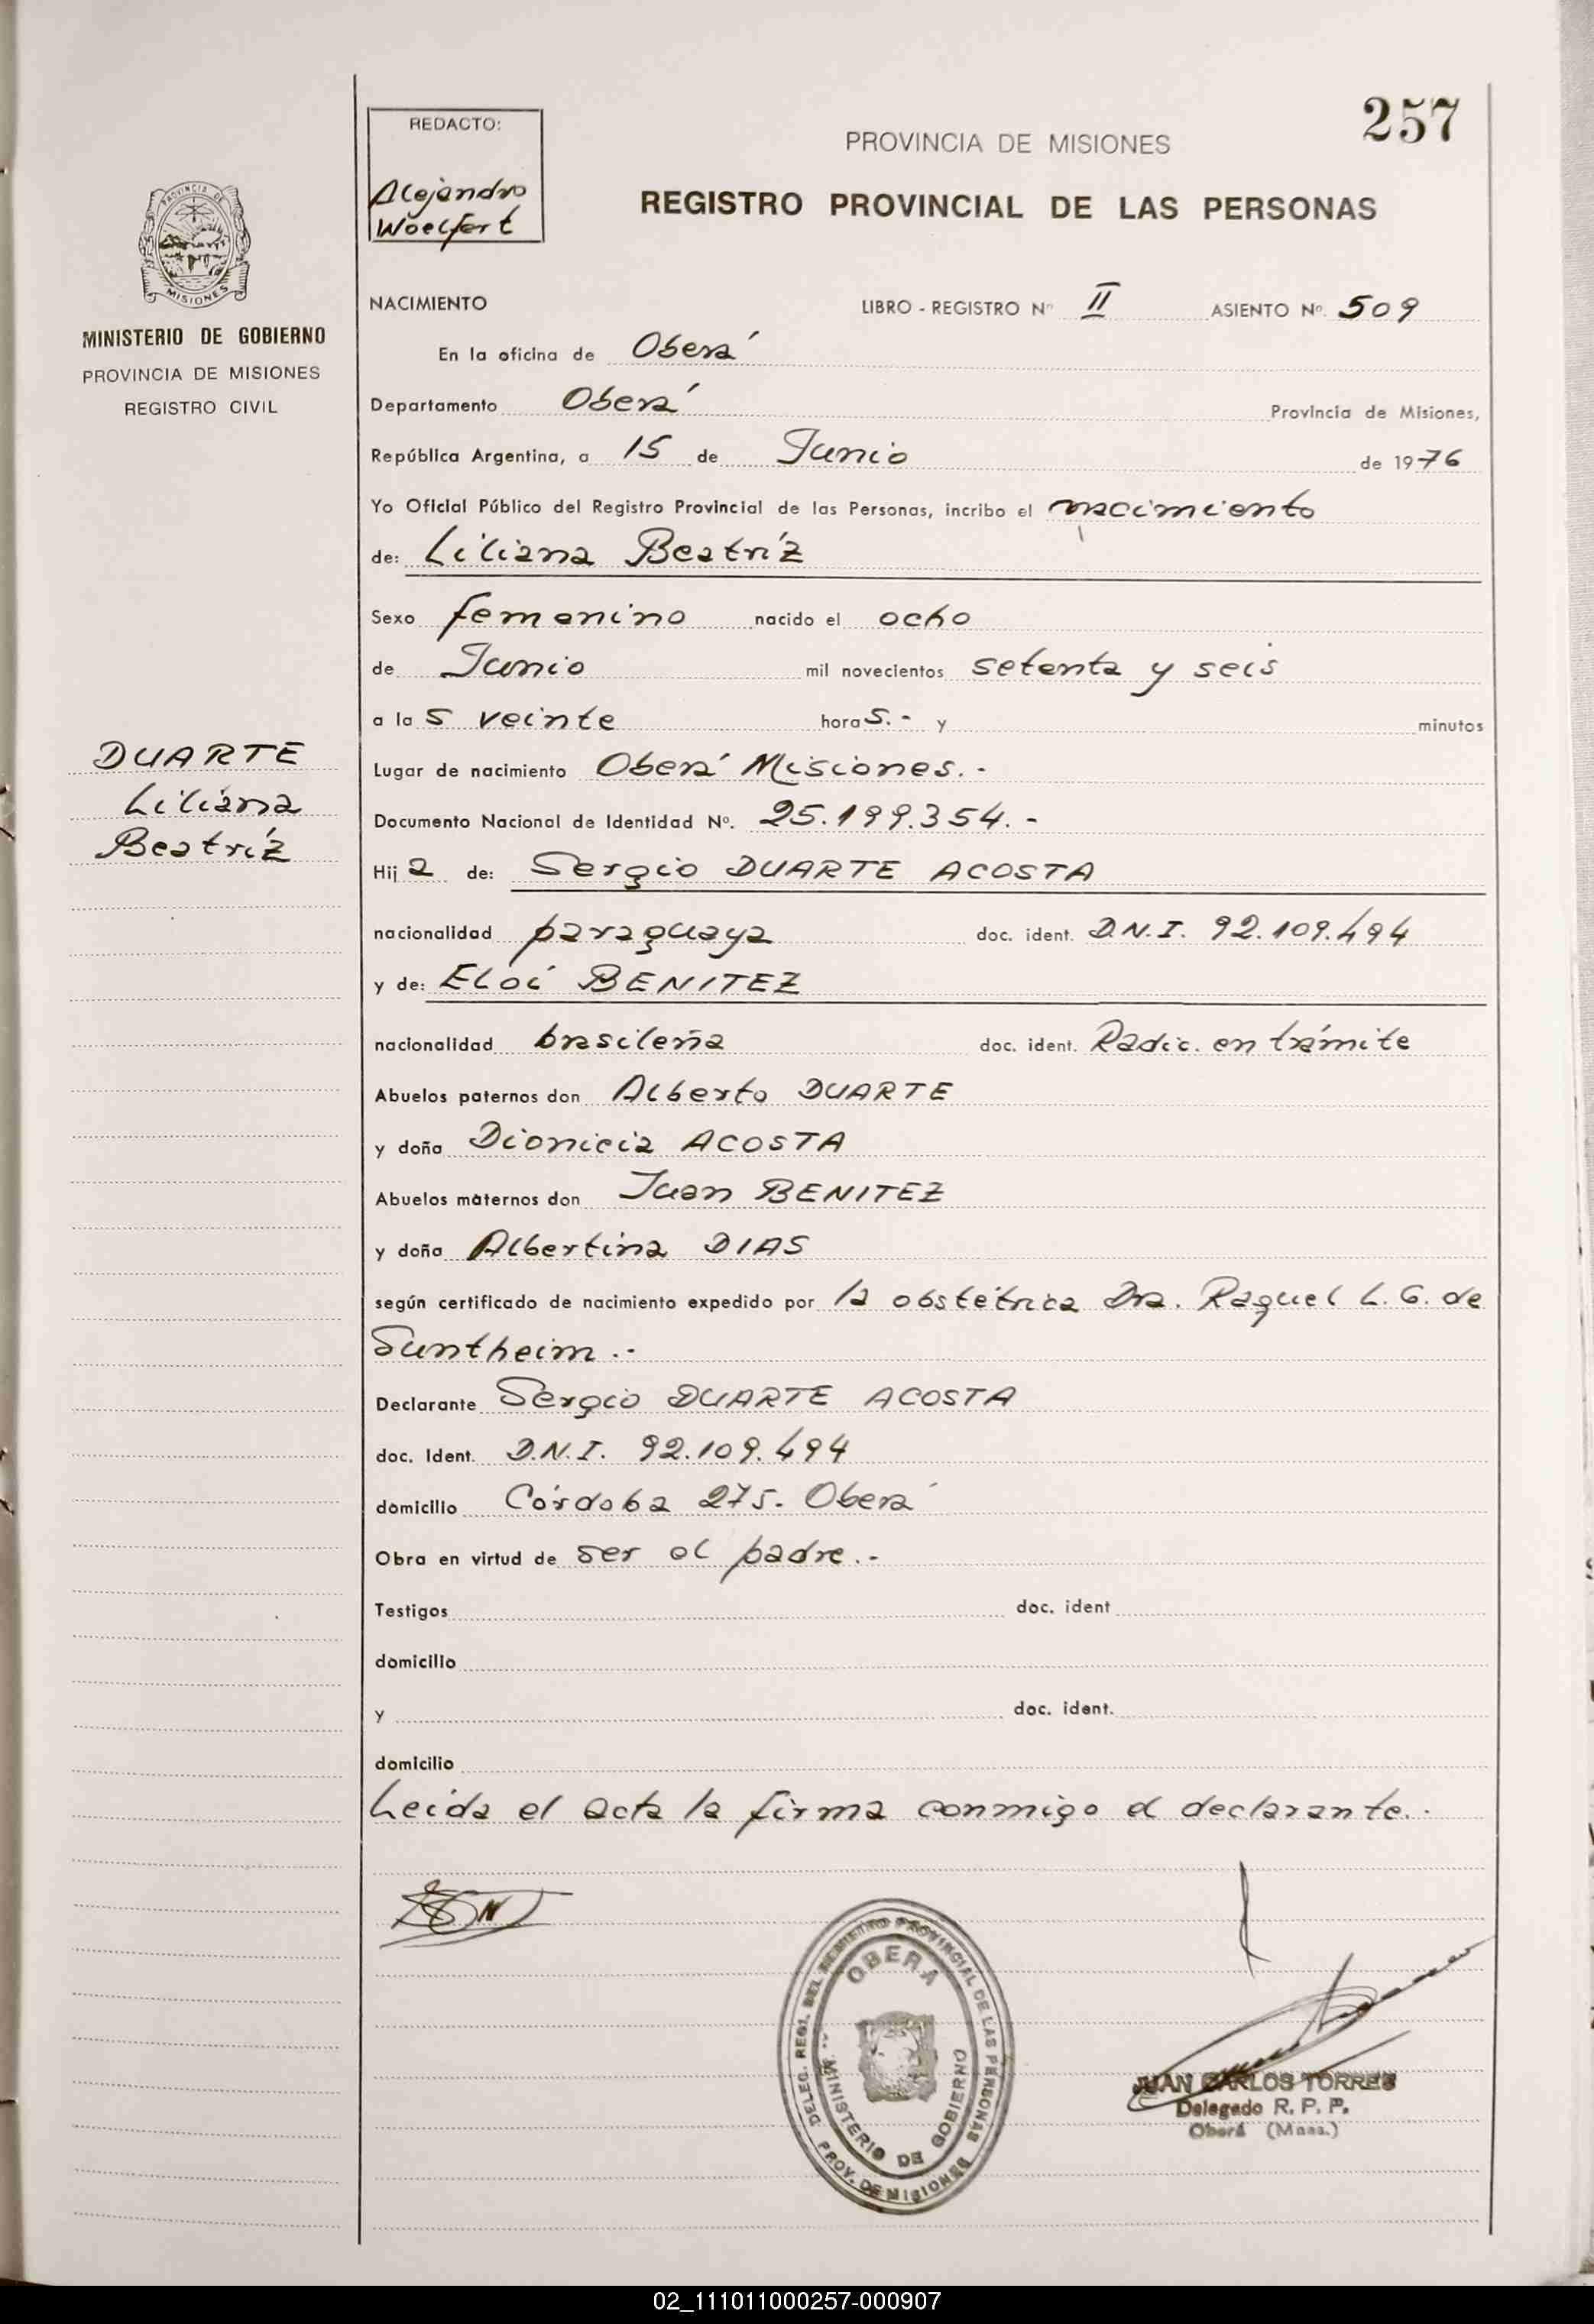 257
REDACTO:
Alejandro
Woelfert
PROVINCIA DE MISIONES
REGISTRO PROVINCIAL DE LAS PERSONAS
PROVINCIA DE
MISIONES
MINISTERIO DE GOBIERNO
PROVINCIA DE MISIONES
REGISTRO CIVIL
DUARTE
Liliana
Beatríz
NACIMIENTO LIBRO - REGISTRO Nº II ASIENTO Nº. 509
En la oficina de Oberá
Departamento Oberá Provincia de Misiones,
República Argentina, a 15 de Junio de 1976
Yo Oficial Público del Registro Provincial de las Personas, incribo el nacimiento
de: Liliana Beatríz
Sexo femenino nacido el ocho
de Junio mil novecientos setenta y seis
a la s veinte hora s.- y minutos
Lugar de nacimiento Oberá Misiones.-
Documento Nacional de Identidad Nº. 25.199.354.-
Hij a de: Sergio DUARTE ACOSTA
nacionalidad paraguaya doc. ident. D.N.I. 92.109.494
y de: Eloí BENITEZ
nacionalidad brasileña doc. ident. Radic. en trámite
Abuelos paternos don Alberto DUARTE
y doña Dionicia ACOSTA
Abuelos maternos don Juan BENITEZ
y doña Albertina DIAS
según certificado de nacimiento expedido por la obstétrica Dra. Raquel L. G. de
Suntheim.-
Declarante Sergio DUARTE ACOSTA
doc. Ident. D.N.I. 92.109.494
domicilio Córdoba 275. Oberá
Obra en virtud de ser el padre.-
Testigos doc. ident
domicilio
y doc. ident.
domicilio
Leida el acta la firma conmigo el declarante.-
DELEG. REGI. DEL REGISTRO PROVINCIAL DE LAS PERSONAS
OBERA
MINISTERIO DE GOBIERNO
PROV. DE MISIONES
JUAN CARLOS TORRES
Delegado R. P. P.
Oberá (Mnes.)
02_111011000257-000907